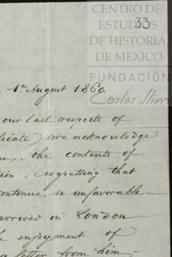 CENTRO DE
ESTUDIOS
DE HISTORIA
DE MEXICO
FUNDACIÓN
Carlos Slim
33
1st August 1860
our last respects of
we acknowledge
the contents of
regretting that
continue so unfavorable
arrived in London
enjoyment of
a letter from him